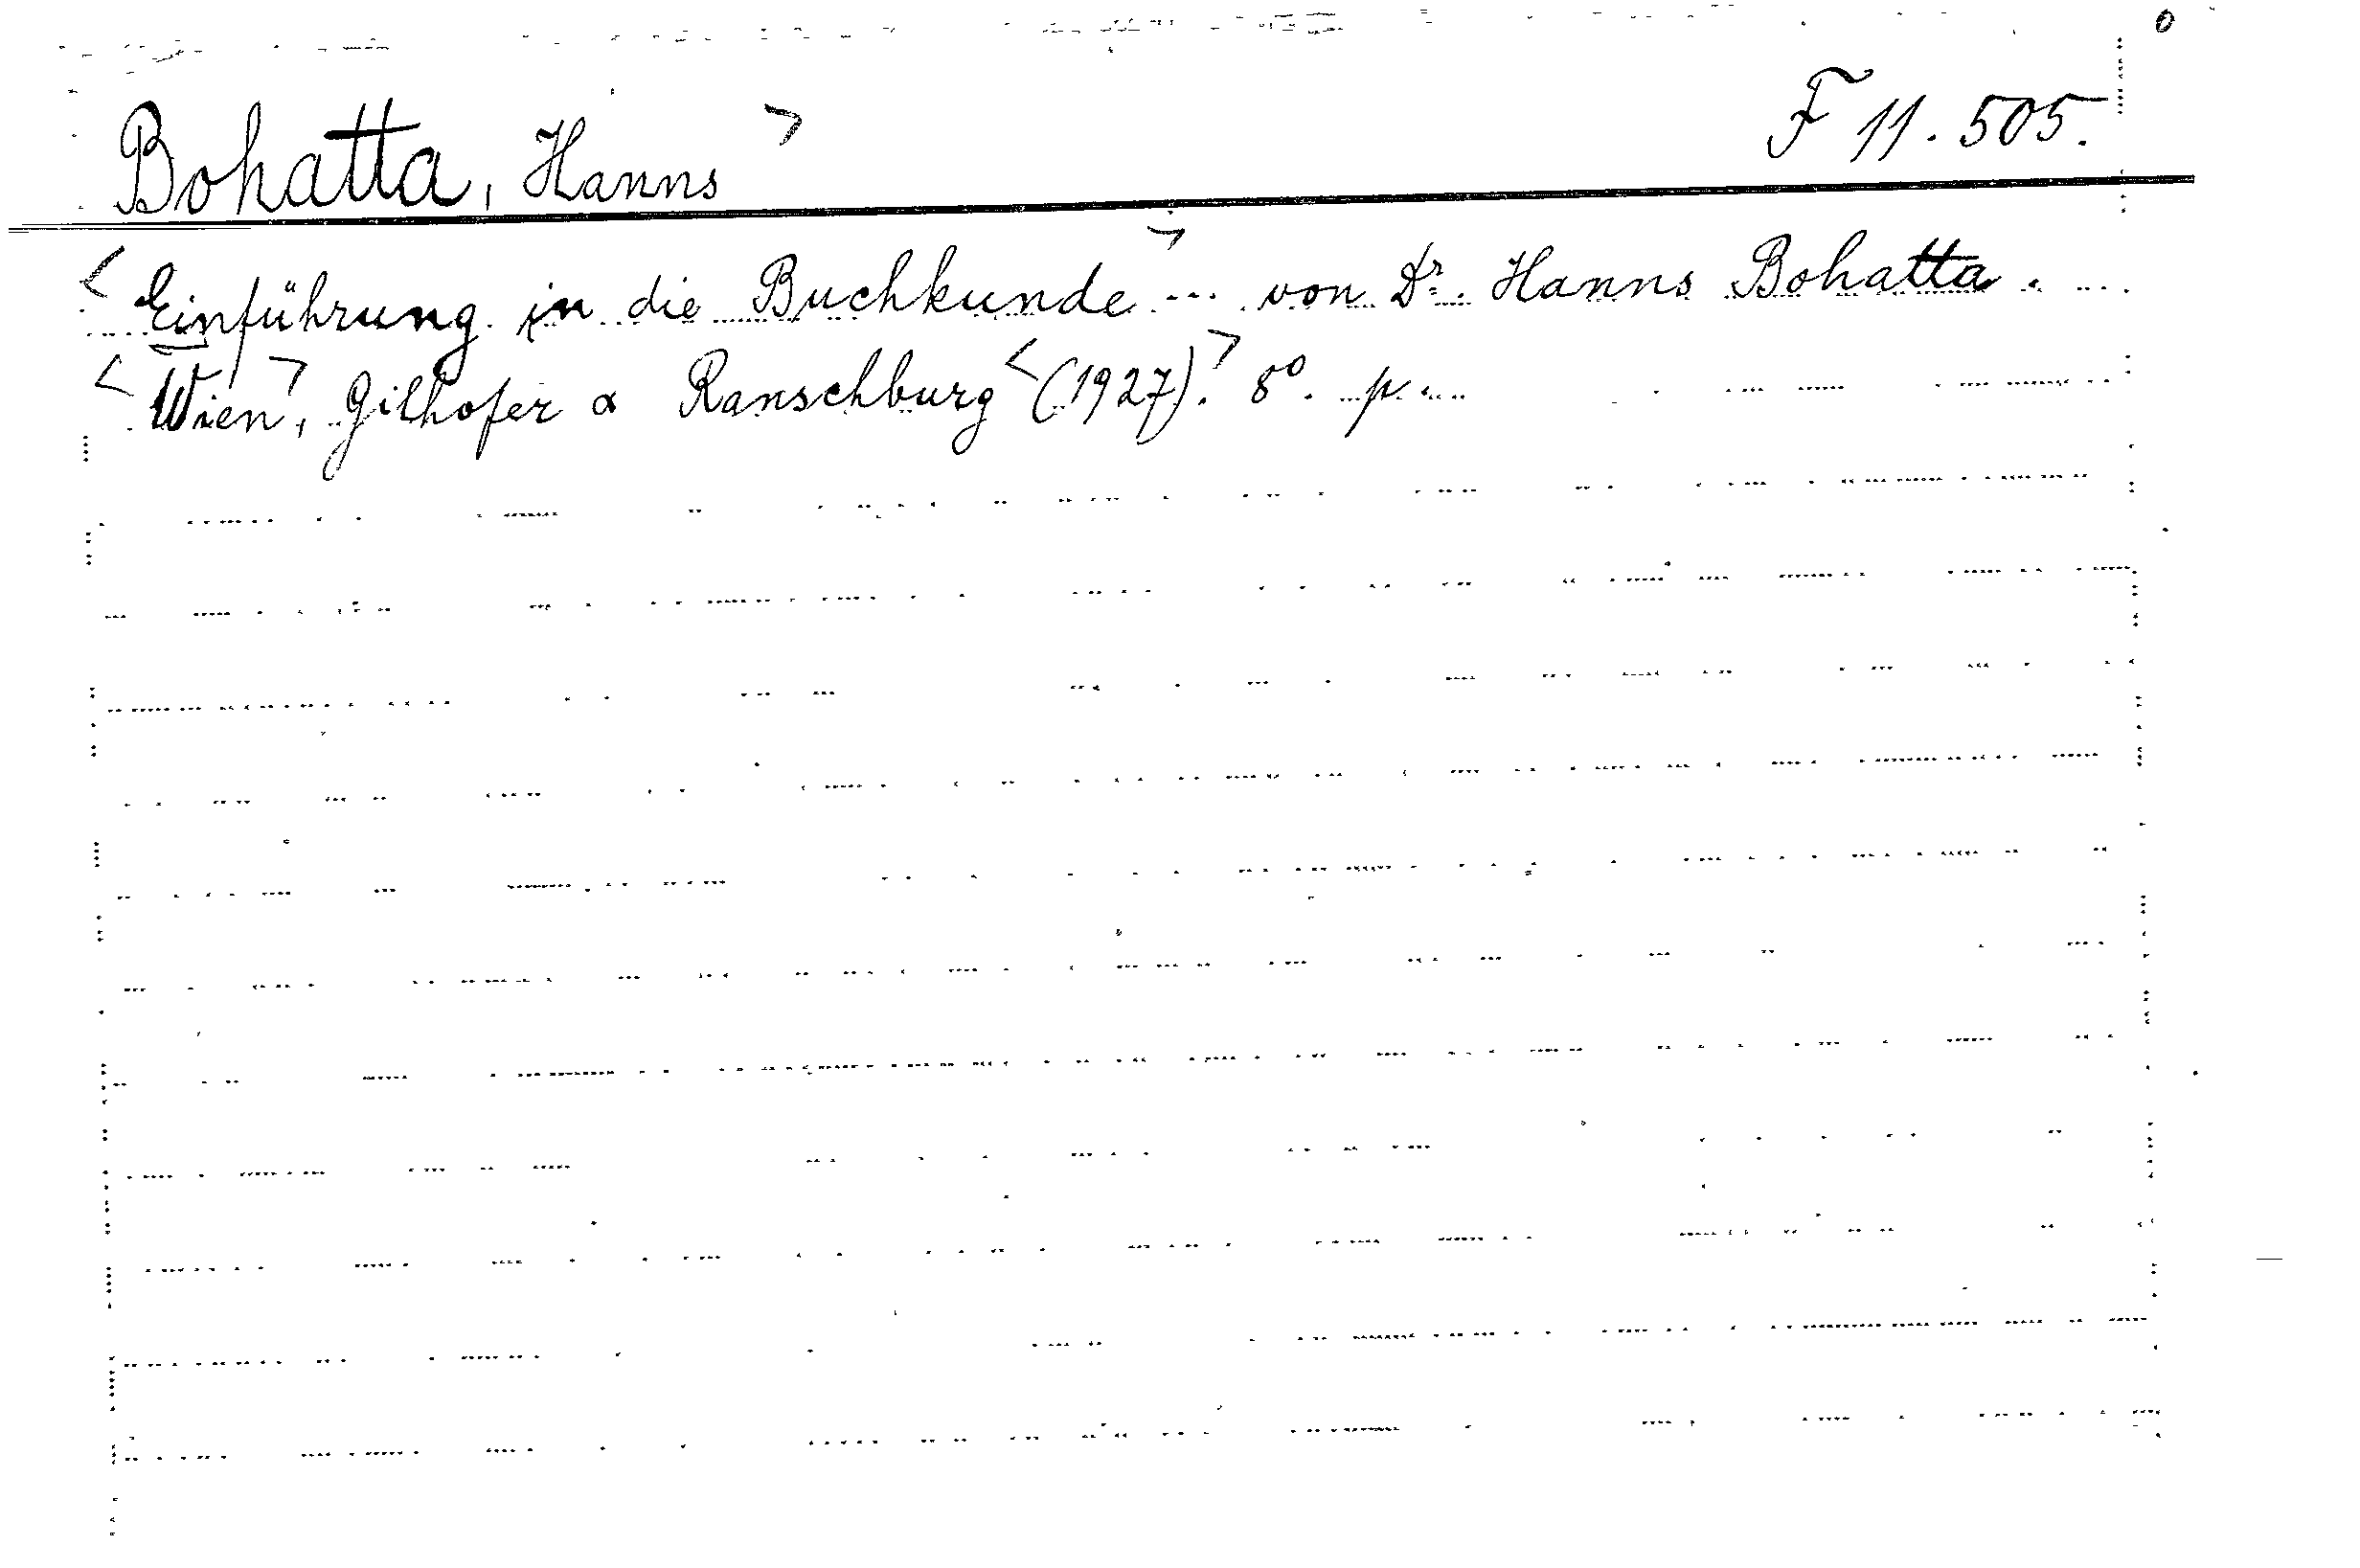 Bohatta, Hanns > F 11.505.
< Einführung in die Buchkunde > ... von Dr. Hanns Bohatta.
< Wien >, Gilhofer & Ranschburg < (1927). > 8º. p...